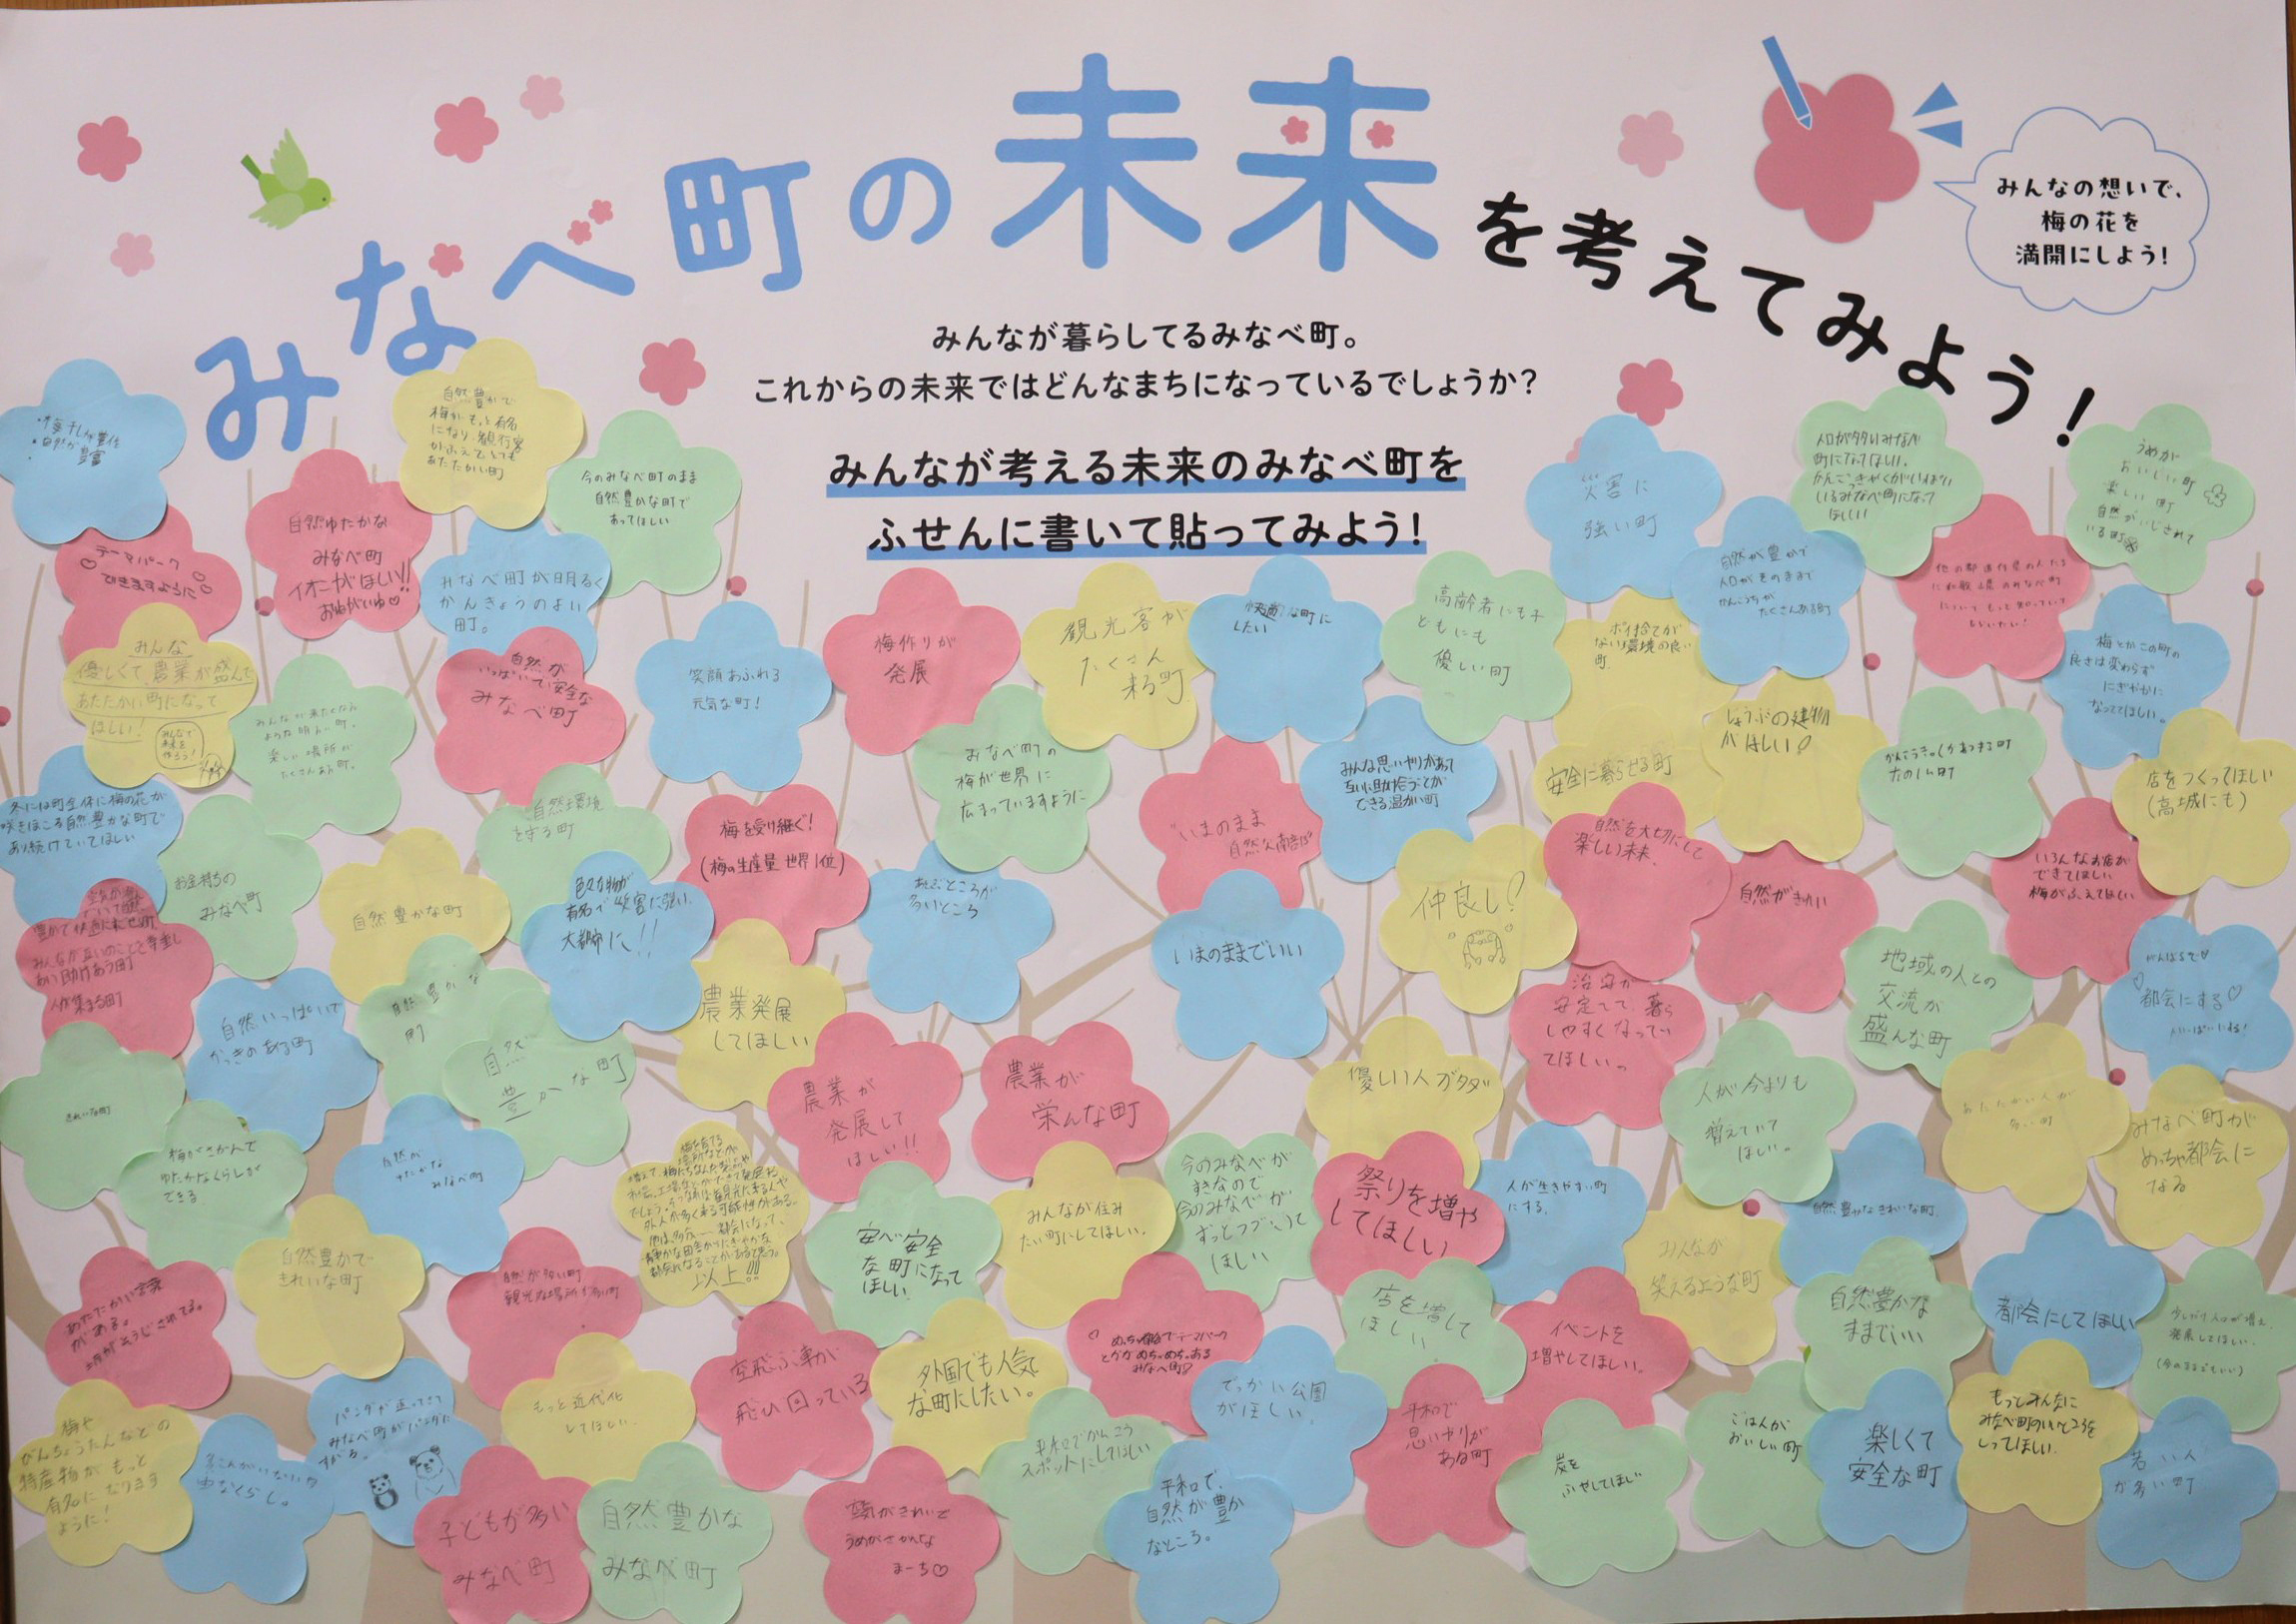 みなべ町の未来を考えてみよう!
みんなの想いで、
梅の花を
満開にしよう!
みんなが暮らしてるみなべ町。
これからの未来ではどんなまちになっているでしょうか?
みんなが考える未来のみなべ町を
ふせんに書いて貼ってみよう!
自然豊かで
梅がもっと有名
になり、観光客
がふえてとても
あたたかい町
今のみなべ町のまま
自然豊かな町で
あってほしい
自然ゆたかな
みなべ町
イオンがほしい!!
テーマパーク
できますように
みなべ町が明るく
かんきょうのよい
町。
みんな
優しくて農業が盛んで
あたたかい町になって
ほしい!
自然が
いっぱいで安全な
みなべ町
笑顔あふれる
元気な町!
梅作りが
発展
観光客が
たくさん
来る町
快適な町に
したい
高齢者にも子
どもにも
優しい町
災害に
強い町
ポイ捨てが
ない環境の良い
町
自然が豊かで
人口がそのままで
かんこうちが
たくさんある町
うめが
おいしい町
楽しい町
自然がいじされて
いる町
梅とかこの町の
良さは変わらず
にぎやかに
なっててほしい。
店をつくってほしい
(高城にも)
安全に暮らせる町
みなべ町の
梅が世界に
広まっていますように
みんな思いやりがあって
互いに助け合うことが
できる温かい町
冬には町全体に梅の花が
咲きほこる自然豊かな町で
あり続けていてほしい
お金持ちの
みなべ町
自然豊かな町
自然環境
を守る町
梅を受け継ぐ!
(梅の生産量世界1位)
色々な物が
有名で災害に強い
大都市に!!
いまのままでいい
仲良し!
自然を大切にして
楽しい未来。
自然がきれい
いろんなお店が
できてほしい
梅がふえてほしい
地域の人との
交流が
盛んな町
都会にする♡
自然いっぱいで
かっきのある町
自然豊かな
町
自然
豊かな町
農業発展
してほしい
農業が
発展して
ほしい!!
農業が
栄んな町
優しい人がタダ
治安が
安定してて、暮ら
しやすくなってい
てほしい。
人が今よりも
増えていて
ほしい。
あたたかい人が
多い町
みなべ町が
めっちゃ都会に
なる
きれいな町
梅がさかんで
ゆたかなくらしが
できる
自然が
ゆたかな
みなべ町
以上!!!
安心安全
な町になって
ほしい
みんなが住み
たい町にしてほしい。
今のみなべが
すきなので
今のみなべが
ずっとつづいて
ほしい
祭りを増や
してほしい
人が生きやすい町
にする。
自然豊かなきれいな町。
みんなが
笑えるような町
自然豊かで
きれいな町
あたたかい言葉
がある。
自然が多い町
もっと近代化
してほしい。
空飛ぶ車が
飛び回っている
外国でも人気
な町にしたい。
でっかい公園
がほしい。
店を増して
ほしい
イベントを
増やしてほしい。
自然豊かな
ままでいい
都会にしてほしい
少しだけ人口が増え、
発展してほしい。
(今のままでもいい)
梅や
びんちょうたんなどの
特産物がもっと
有名になります
ように!
パンダが返ってきて
みなべ町がパンダに
子どもが多い
みなべ町
自然豊かな
みなべ町
空気がきれいで
うめがさかんな
まーち♡
平和でかんこう
スポットにしてほしい
平和で、
自然が豊か
なところ。
平和で
思いやりが
ある町
炭を
ふやしてほしい
ごはんが
おいしい町
楽しくて
安全な町
もっとみんなに
みなべ町のいいところを
しってほしい。
若い人
が多い町